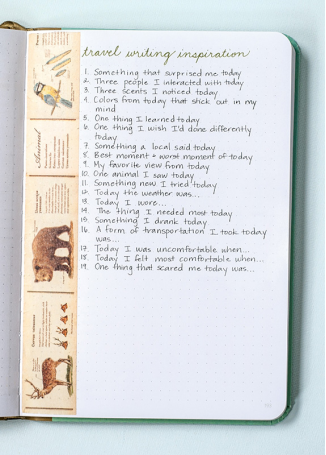 travel writing inspiration
1. Something that surprised me today
2. Three people I interacted with today
3. Three scents I noticed today
4. Colors from today that stick out in my
mind
5. One thing I learned today
6. One thing I wish I'd done differently
today
7. Something a local said today
8. Best moment + worst moment of today
9. My favorite view from today
10. One animal I saw today
11. Something new I tried today
12. Today the weather was...
13. Today I wore...
14. The thing I needed most today
15. Something I drank today
16. A form of transportation I took today
was...
17. Today I was uncomfortable when...
18. Today I felt most comfortable when...
19. One thing that scared me today was...
Animal